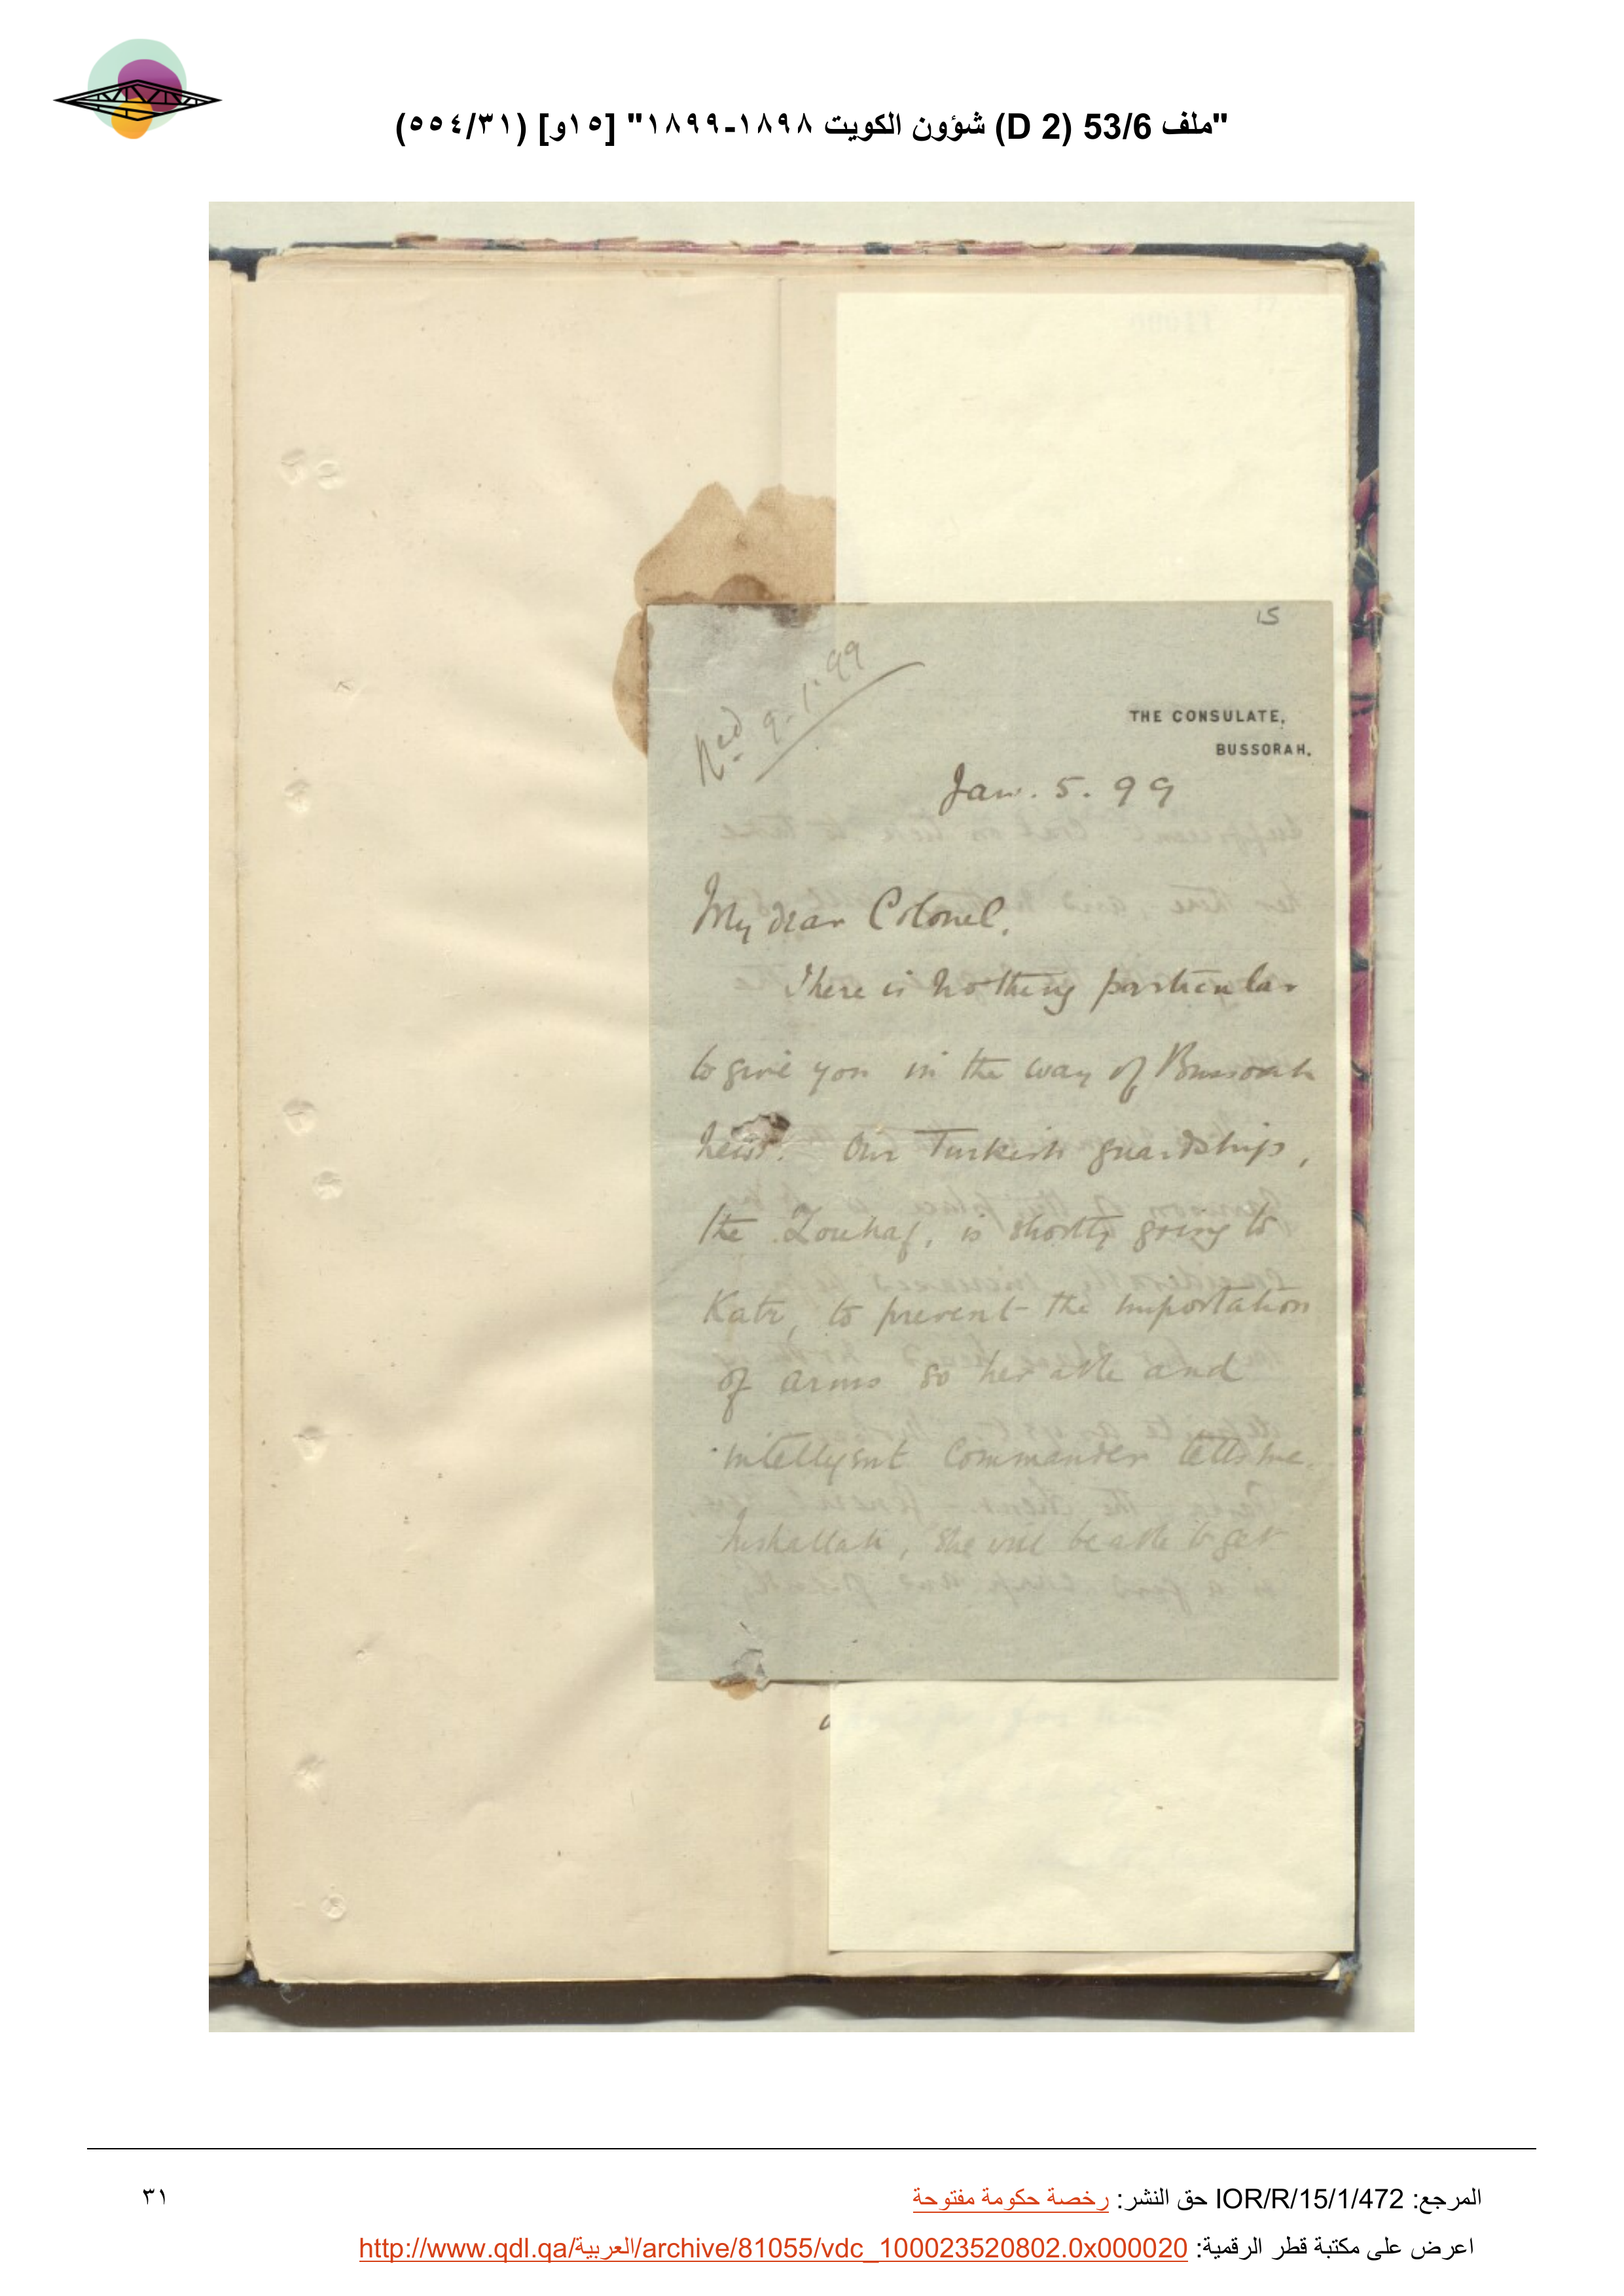 "ملف 53/6 (D 2) شؤون الكويت ١٨٩٨-١٨٩٩" [١٥و] (٥٥٤/٣١)
15
Recd 9-1-99
THE CONSULATE,
BUSSORAH.
Jan. 5. 99
My dear Colonel,
There is nothing particular
to give you in the way of Bussorah
news. Our Turkish guardship,
the Zouhaf, is shortly going to
Katr, to prevent the importation
of arms so her able and
intelligent Commander tells me.
Inshallah, she will be able to get
المرجع: IOR/R/15/1/472 حق النشر: رخصة حكومة مفتوحة
٣١
اعرض على مكتبة قطر الرقمية: http://www.qdl.qa/العربية/archive/81055/vdc_100023520802.0x000020